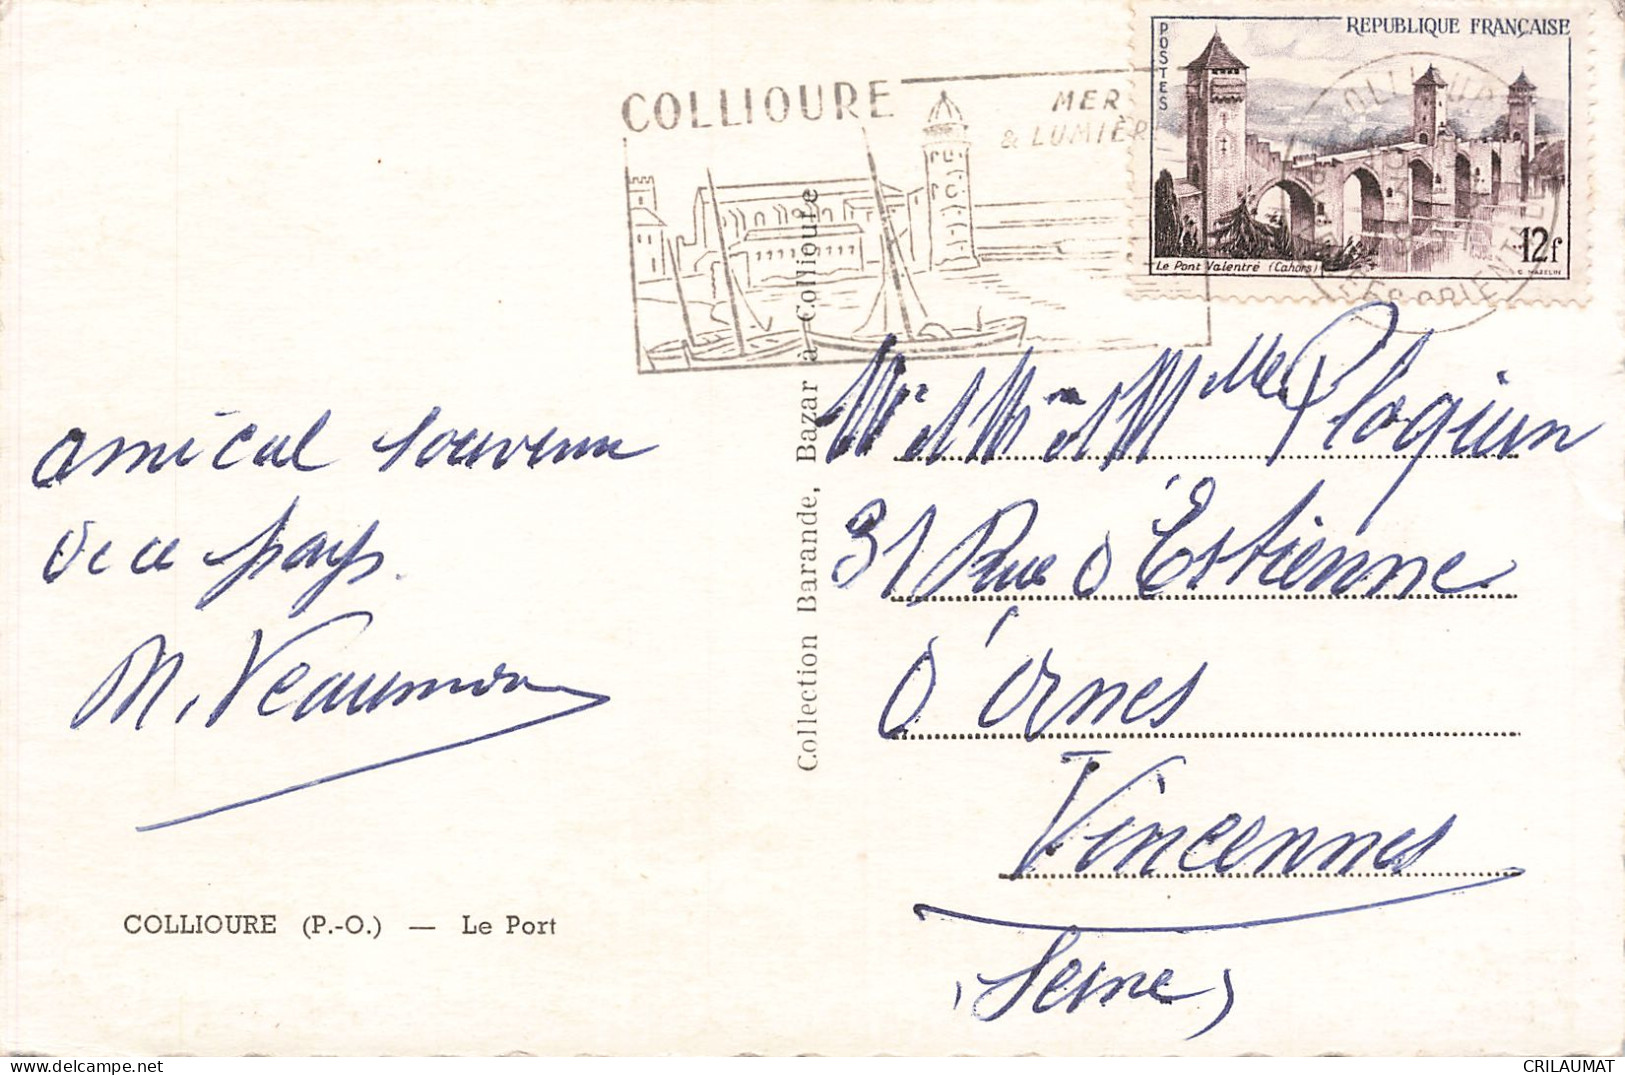 COLLIOURE
MER
& LUMIÈR
POSTES
REPUBLIQUE FRANÇAISE
Le Pont Valentré (Cahors)
12f
C. MAZELIN
amical souvenir
de ce pays.
M. Veaumon
COLLIOURE (P.-O.) — Le Port
Collection Barande, Bazar à Collioure
Mr et Mme et Mlle Plaquin
31 Rue d'Estienne
d'Ornes
Vincennes
(Seine)
Delcampe.net
CRILAUMAT